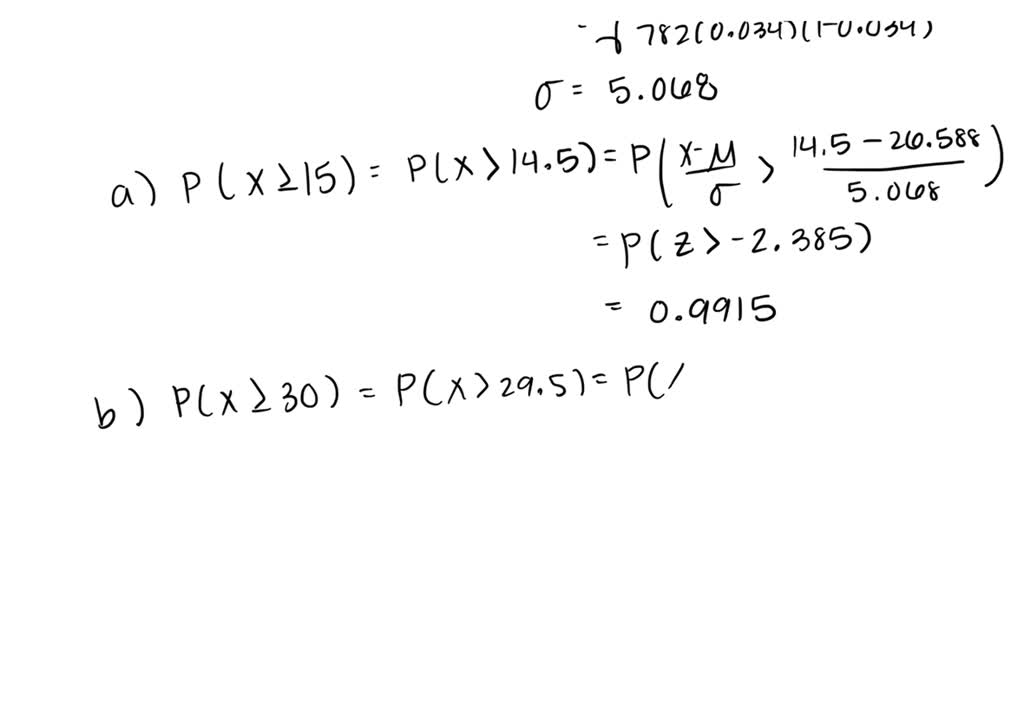 = √782(0.034)(1-0.034)
σ = 5.068
a) P(X≥15) = P(X>14.5) = P(X-μ/σ > 14.5-26.588/5.068)
= P(Z>-2.385)
= 0.9915
b) P(X≥30) = P(X>29.5) = P(